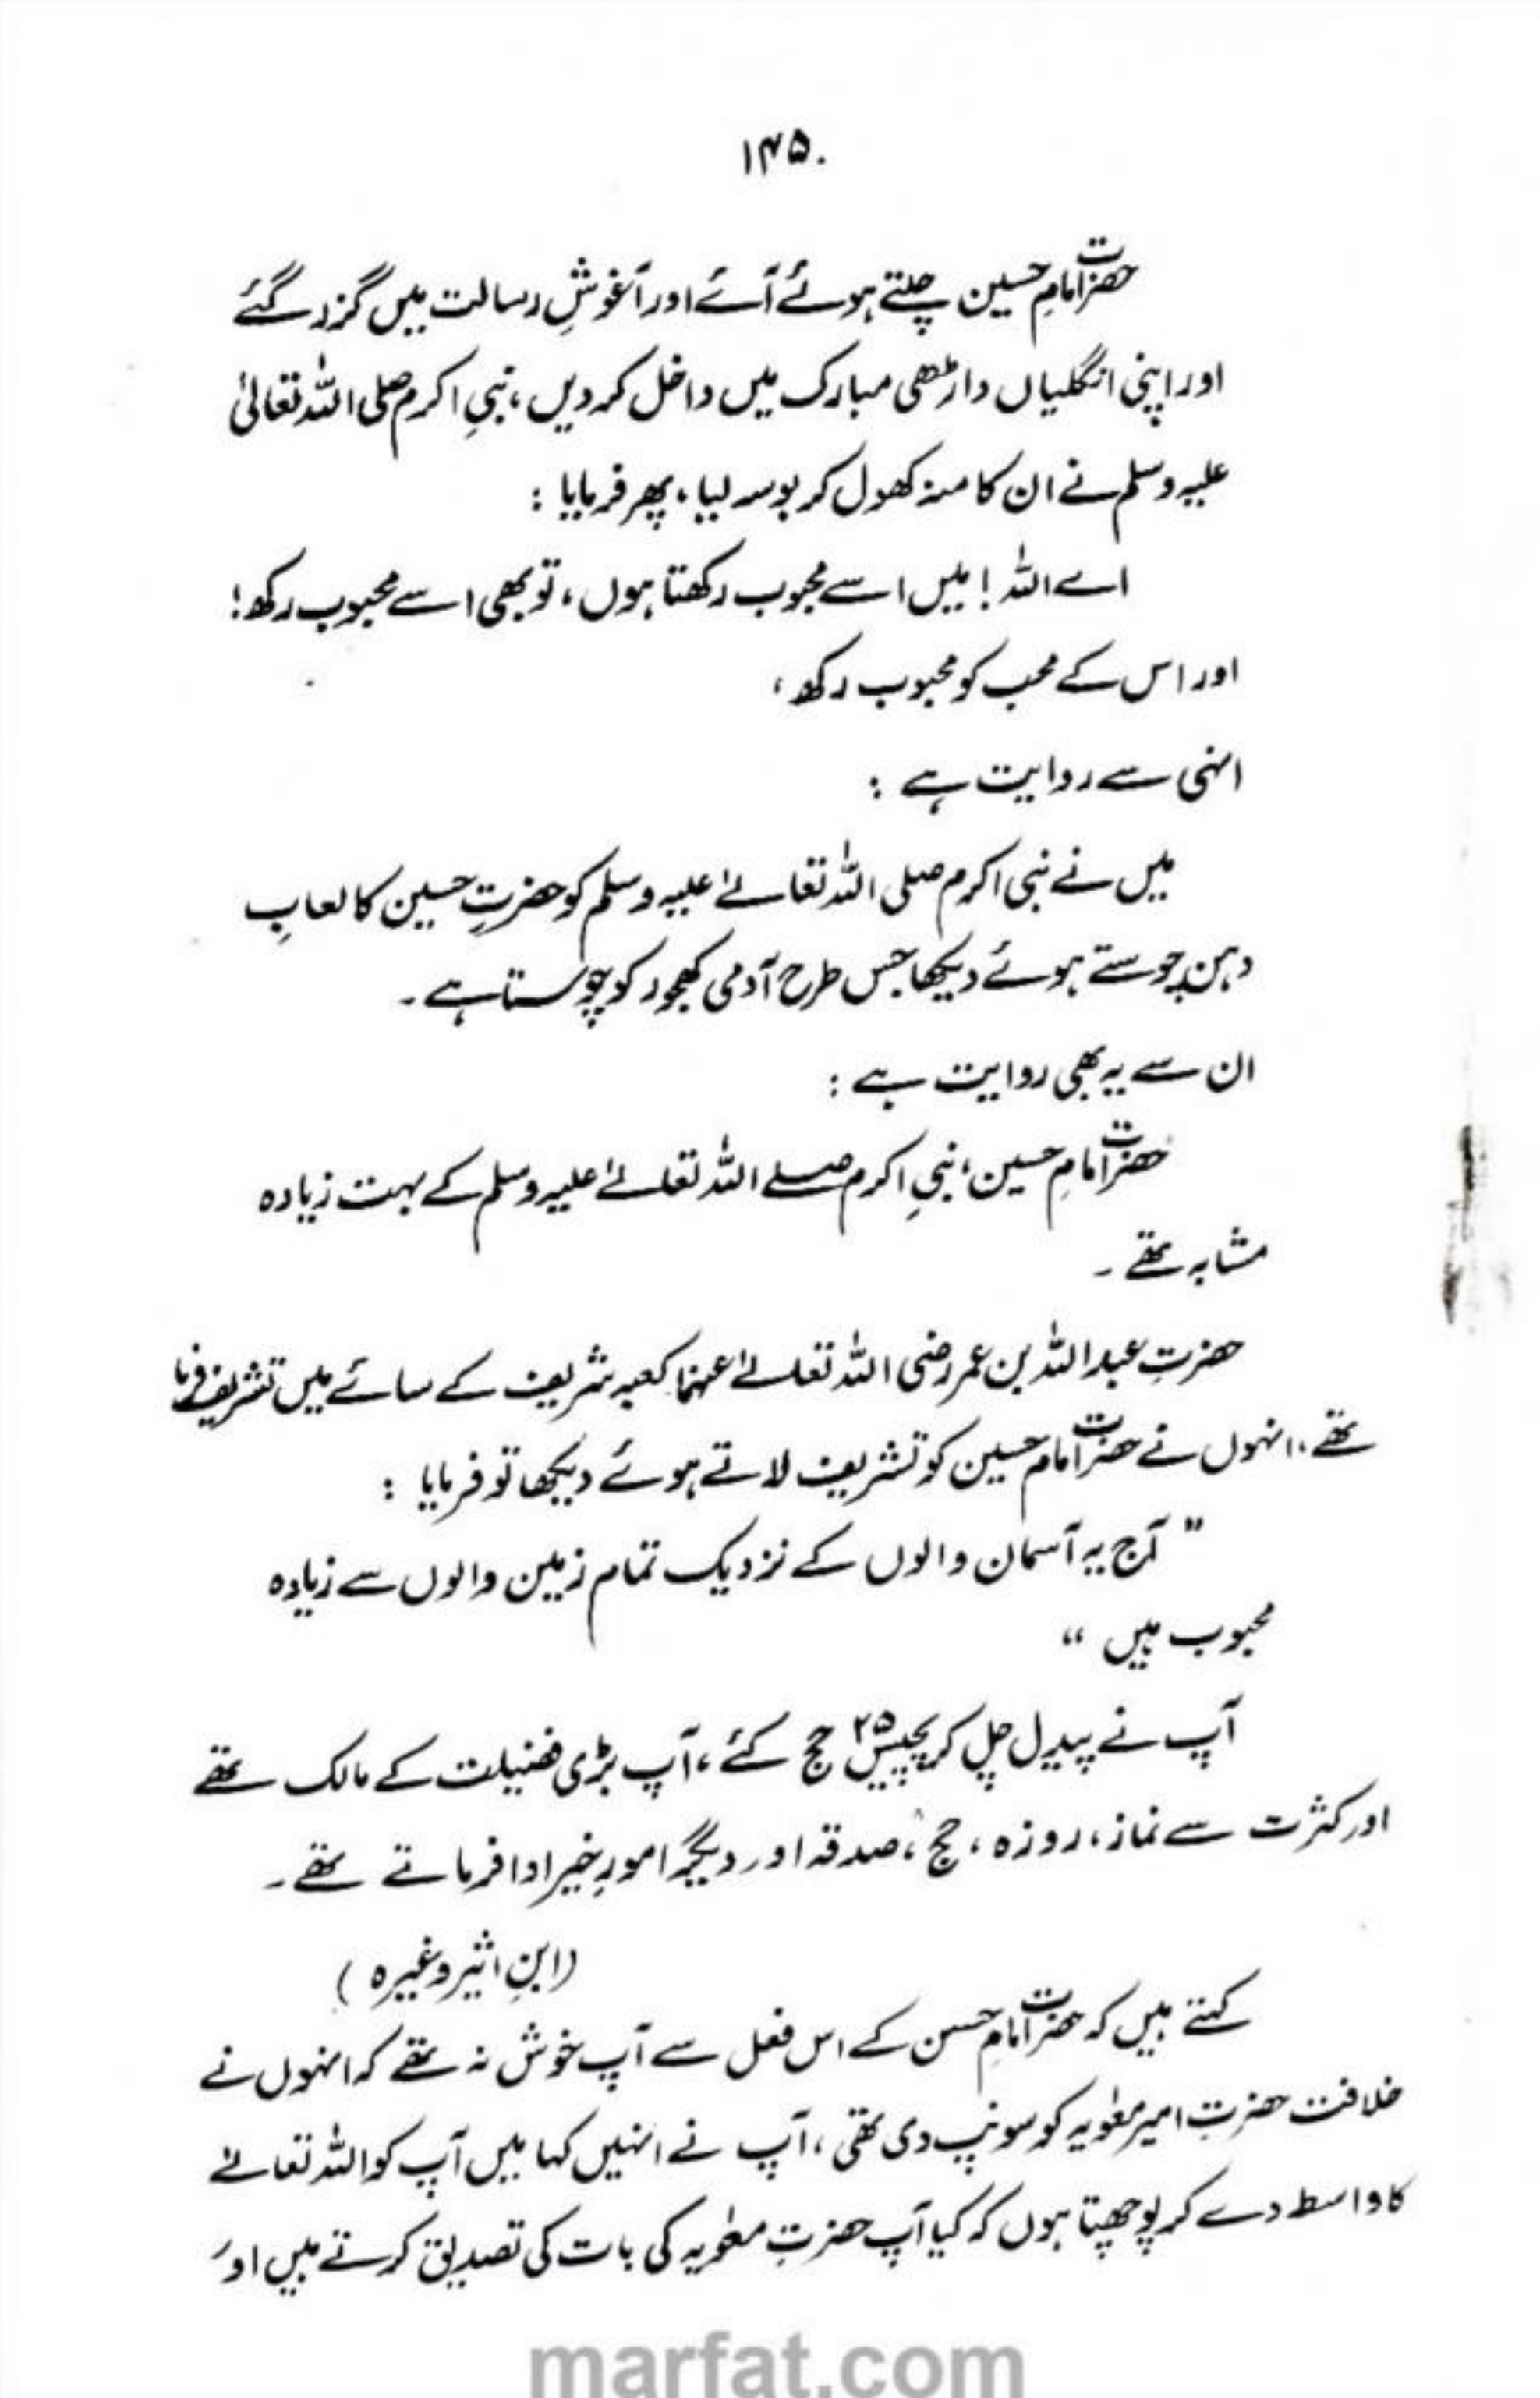 ۱۴۵
حضرت امامِ حسین چلتے ہوئے آئے اور آغوشِ رسالت میں گزر گئے
اور اپنی انگلیاں داڑھی مبارک میں داخل کر دیں، نبیِ اکرم صلی اللہ تعالیٰ
علیہ وسلم نے ان کا منہ کھول کر بوسہ لیا، پھر فرمایا :
اے اللہ! میں اسے محبوب رکھتا ہوں، تو بھی اسے محبوب رکھ!
اور اس کے محب کو محبوب رکھ،
انہی سے روایت ہے :
میں نے نبی اکرم صلی اللہ تعالےٰ علیہ وسلم کو حضرتِ حسین کا لعابِ
دہن چوستے ہوئے دیکھا جس طرح آدمی کھجور کو چوستا ہے۔
ان سے یہ بھی روایت ہے :
حضرت امامِ حسین، نبیِ اکرم صلے اللہ تعالےٰ علیہ وسلم کے بہت زیادہ
مشابہ تھے۔
حضرتِ عبداللہ بن عمر رضی اللہ تعالےٰ عنہما کعبہ شریف کے سائے میں تشریف فرما
تھے، انہوں نے حضرت امام حسین کو تشریف لاتے ہوئے دیکھا تو فرمایا :
” آج یہ آسمان والوں کے نزدیک تمام زمین والوں سے زیادہ
محبوب ہیں “
آپ نے پیدل چل کر پچیس ۲۵ حج کئے، آپ بڑی فضیلت کے مالک تھے
اور کثرت سے نماز، روزہ، حج، صدقہ اور دیگر امورِ خیر ادا فرماتے تھے۔
(ابنِ اثیر وغیرہ)
کہتے ہیں کہ حضرت امامِ حسن کے اس فعل سے آپ خوش نہ تھے کہ انہوں نے
خلافت حضرتِ امیر معٰویہ کو سونپ دی تھی، آپ نے انہیں کہا میں آپ کو اللہ تعالےٰ
کا واسطہ دے کر پوچھتا ہوں کہ کیا آپ حضرتِ معٰویہ کی بات کی تصدیق کرتے ہیں اور
marfat.com